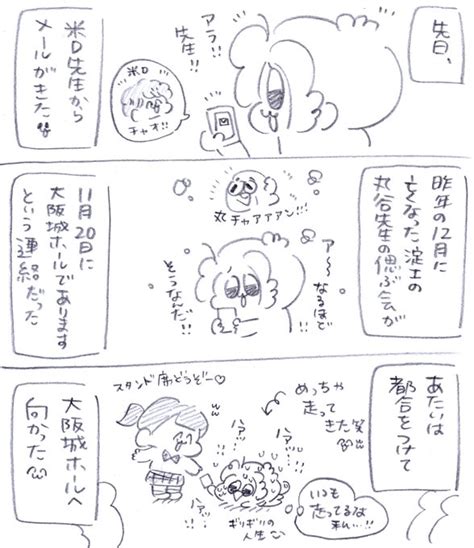 先日、
アラ!!
先生!!
米D
チャオ!!
米D先生から
メールがきた
昨年の12月に
亡くなった淀工の
丸谷先生の偲ぶ会が
丸チャアアアン!!
ア〜
なるほど
そうなんだ!!
11月20日に
大阪城ホールであります
という連絡だった
あたいは
都合をつけて
めっちゃ
走って
きた笑
スタンド席どうぞー♡
ハアッ
ハアッ
ハアッ
ハアッ
いつも
走ってるな
私…!!
ギリギリの
人生〜
大阪城ホールへ
向かった